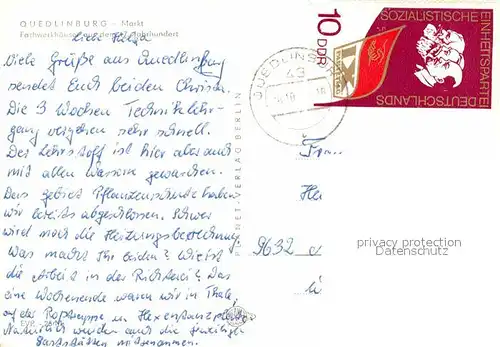 QUEDLINBURG – Markt
Fachwerkhäuser aus dem 17. Jahrhundert
Liebe Helga
Viele Grüße aus Quedlinburg
sendet Euch beiden Christa.
Die 3 Wochen Techniklehr-
gang vergehen sehr schnell.
Der Lehrstoff ist hier aber auch
mit allen Wassern gewaschen.
Das Gebiet Pflanzenschutz haben
wir bereits abgeschlossen. Schwer
wird noch die Heizungsberechnung
Was macht Ihr beiden?
die Arbeit in der
eine Wochenende waren wir in Thale,
auf der Roßtrappe u. Hexentanzplatz
Natürlich wurden auch die jeweiligen
Gaststätten mitgenommen.
PLANET-VERLAG BERLIN
QUEDLINBURG
43
10 DDR
SOZIALISTISCHE
EINHEITSPARTEI
DEUTSCHLANDS
Frau
He
9632
privacy protection
Datenschutz